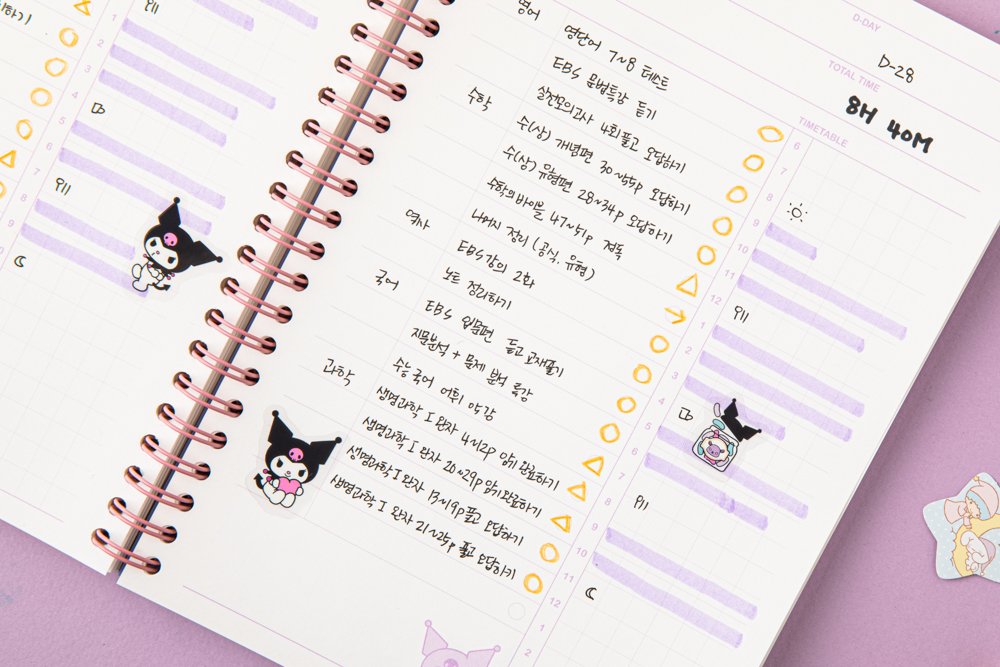 D-DAY
D-28
TOTAL TIME
8H 40M
TIMETABLE
영어
영단어 7~8 테스트
EBS 문법특강 듣기
수학
실전모의고사 4회 풀고 오답하기
수(상) 개념편 30~45p 오답하기
수(상) 유형편 28~34p 오답하기
수학의 바이블 47~51p 정독
나머지 정리 (공식, 유형)
역사
EBS 강의 2화
노트 정리하기
국어
EBS 입문편 듣고 교재풀기
지문분석 + 문제 분석 특강
수능 국어 어휘 인강
과학
생명과학 I 완자 4~12p 암기 완료하기
생명과학 I 완자 20~29p 암기완료하기
생명과학 I 완자 13~19p 풀고 오답하기
생명과학 I 완자 21~25p 풀고 오답하기
6
7
8
9
10
11
12
1
2
3
4
5
6
7
8
9
10
11
12
1
2
1
2
3
4
5
6
7
8
9